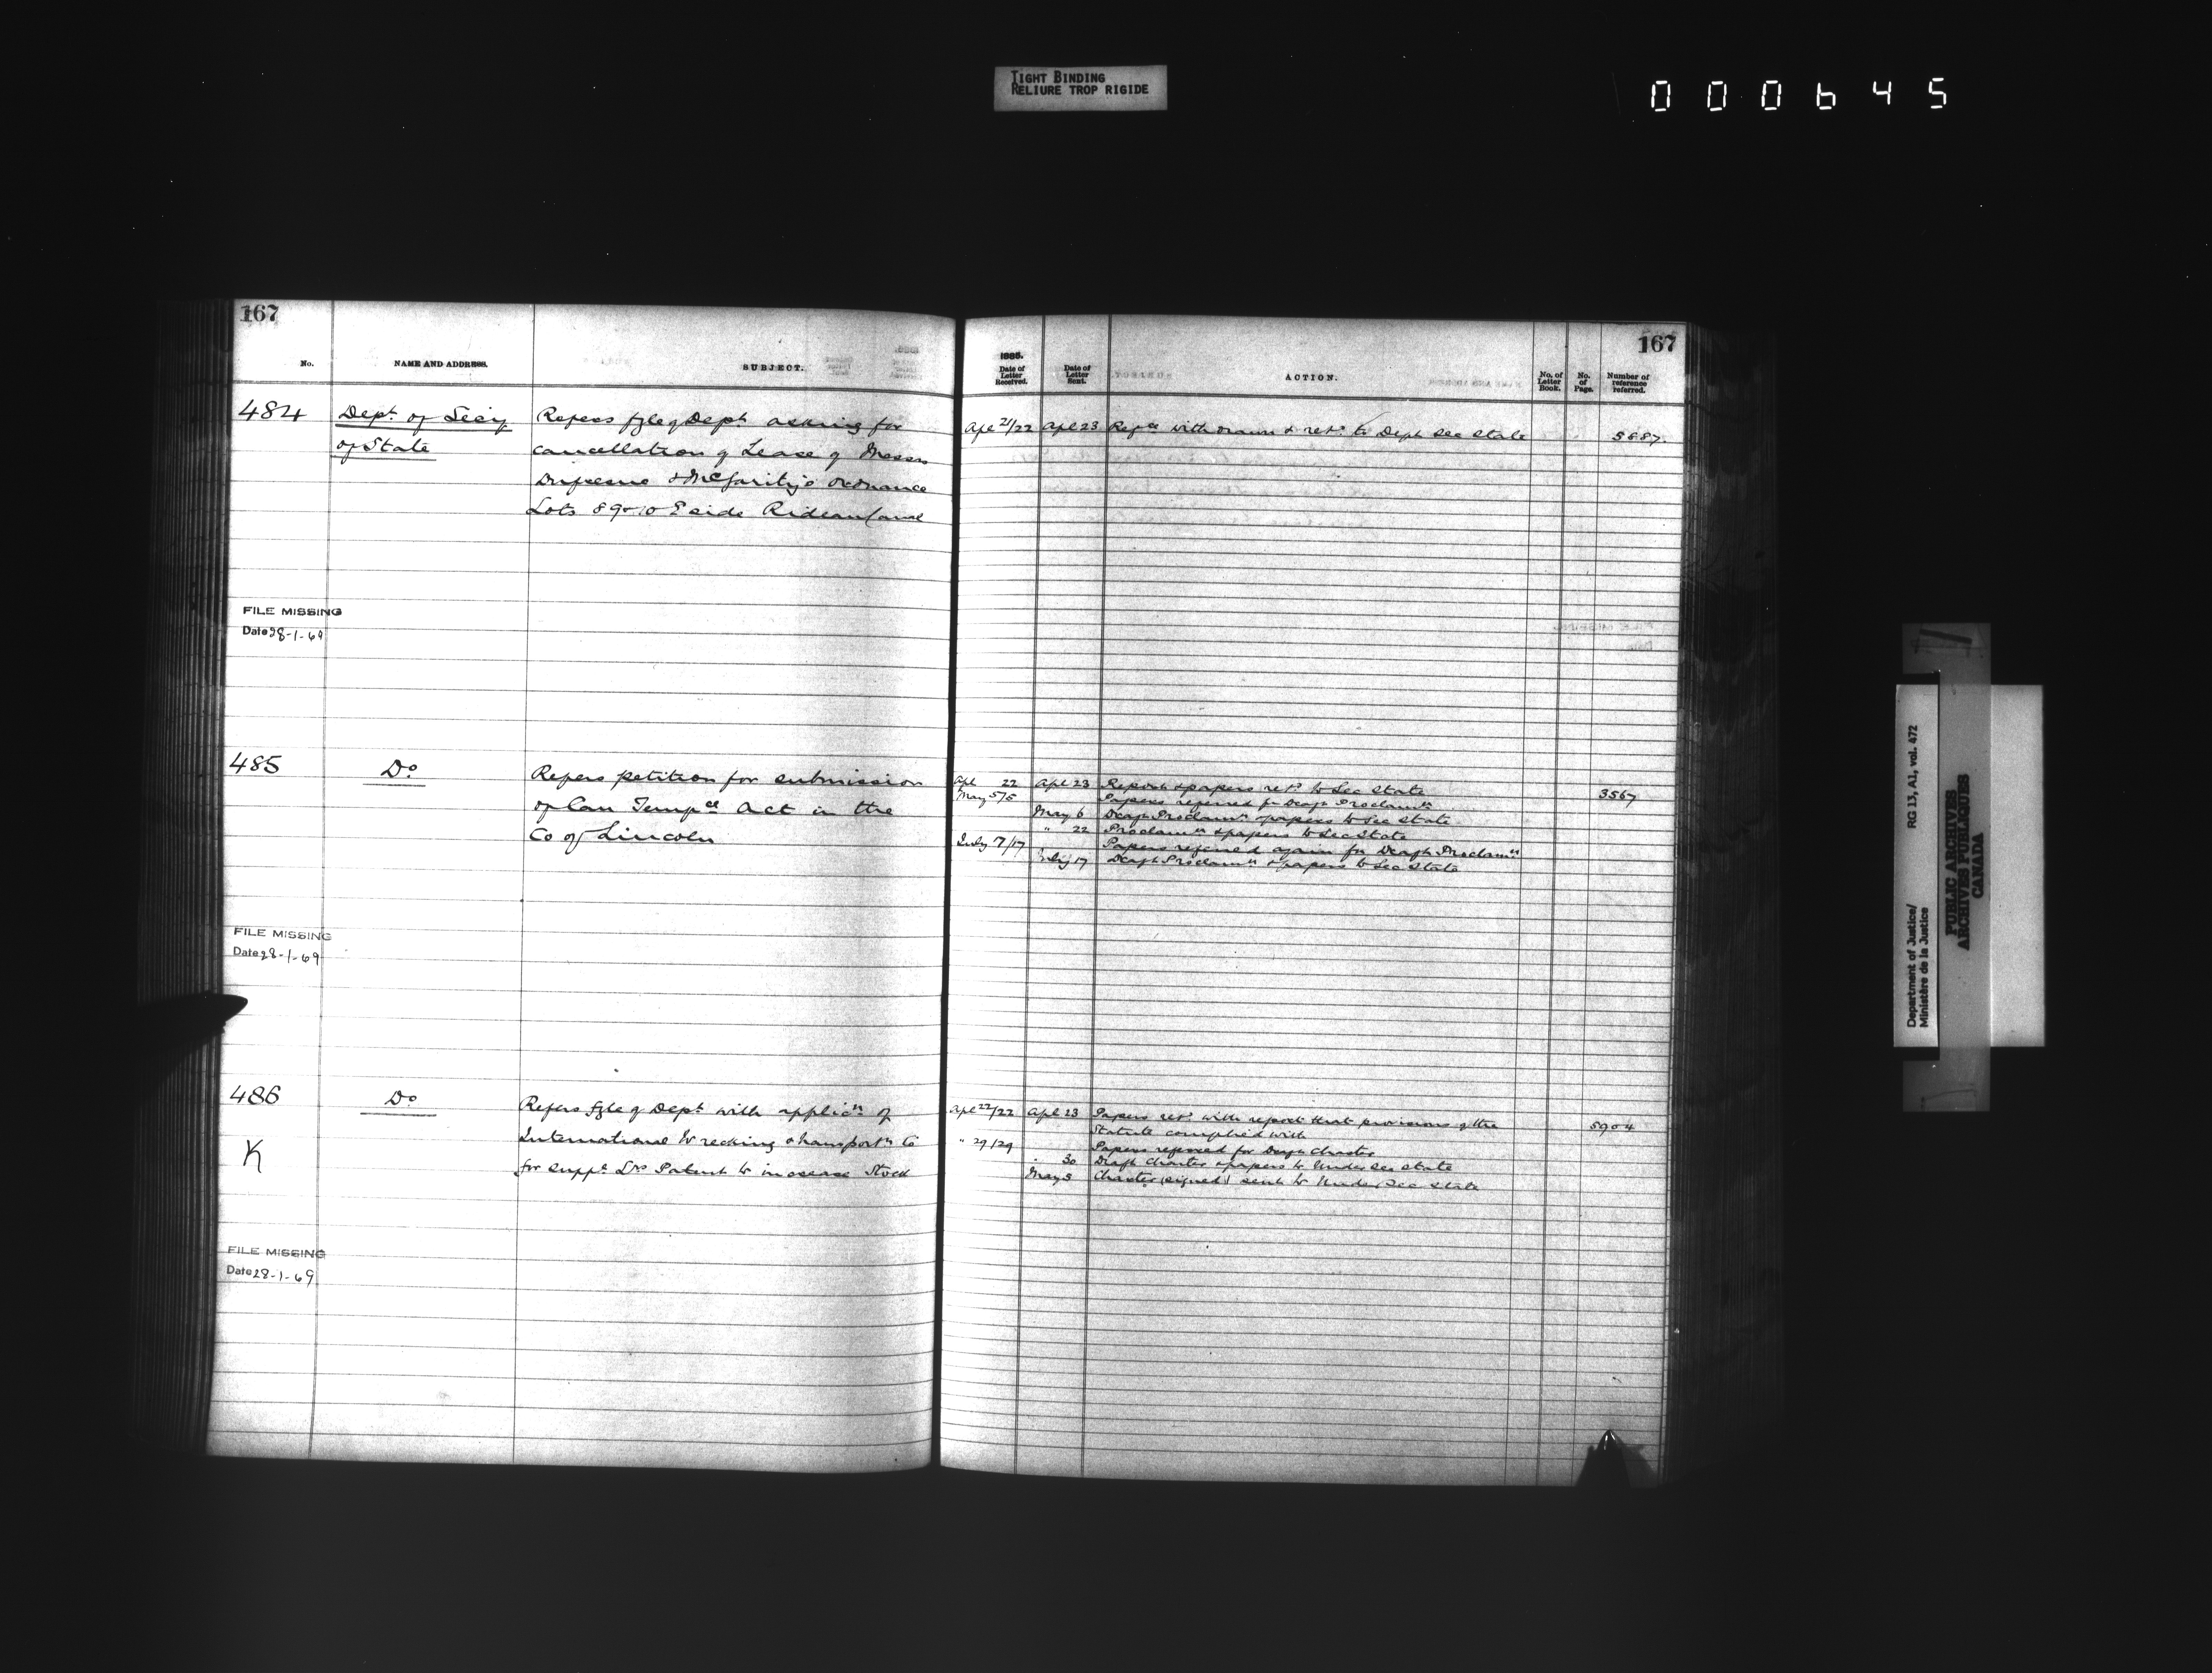 TIGHT BINDING
RELIURE TROP RIGIDE
000645
167
No.
NAME AND ADDRESS.
SUBJECT.
484
Dept. of Secy
of State
Refers fyle of Dept asking for
cancellation of Lease of Messrs
& McGarity's Ordnance
Lots 8 9 & 10 E side Rideau Canal
FILE MISSING
Date 28-1-69
485
Do
Refers petition for submission
of Can Tempce Act in the
Co of Lincoln
FILE MISSING
Date 28-1-69
486
Do
K
Refers fyle of Dept with applicn of
International Wrecking & Transportn Co
for suppl Lrs Patent to increase Stock
FILE MISSING
Date 28-1-69
167
1885.
Date of Letter Received.
Date of Letter Sent.
ACTION.
No. of Letter Book.
No. of Page.
Number of reference referred.
Apl 21/22 Apl 23 Refce withdrawn & retd to Dept Sec State 5887.
Apl 22 Apl 23 Report & papers retd to Sec State 3567
May 5/5 Papers referred for Draft Proclamn
May 6 Draft Proclamn & papers to Sec State
" 22 Proclamn & papers to Sec State
July 7/17 Papers referred again for Draft Proclamn
July 17 Draft Proclamn & papers to Sec State
Apl 22/22 Apl 23 Papers retd with report that provisions of the 5904
Statute complied with
" 29/29 Papers referred for Draft Charter
" 30 Draft Charter & papers to Under Sec State
May 5 Charter (signed) sent to Under Sec State
Department of Justice/
Ministère de la Justice
RG 13, A1, vol. 472
PUBLIC ARCHIVES
ARCHIVES PUBLIQUES
CANADA